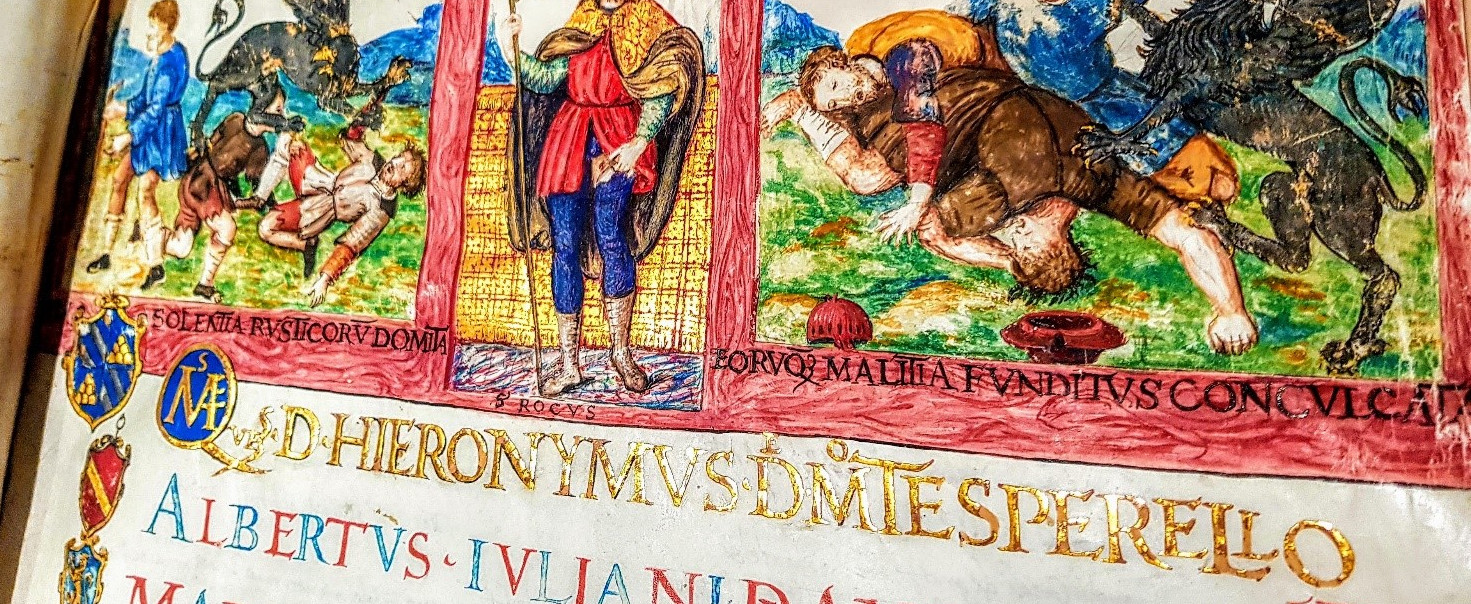 SOLENTIA RVSTICORV DOMITA
S ROCVS
EORVQ MALITIA FVNDITVS CONCVLCATA
MAEVS·D·HIERONYMVS·D·MTESPERELLO
ALBERTVS·IVLIANI